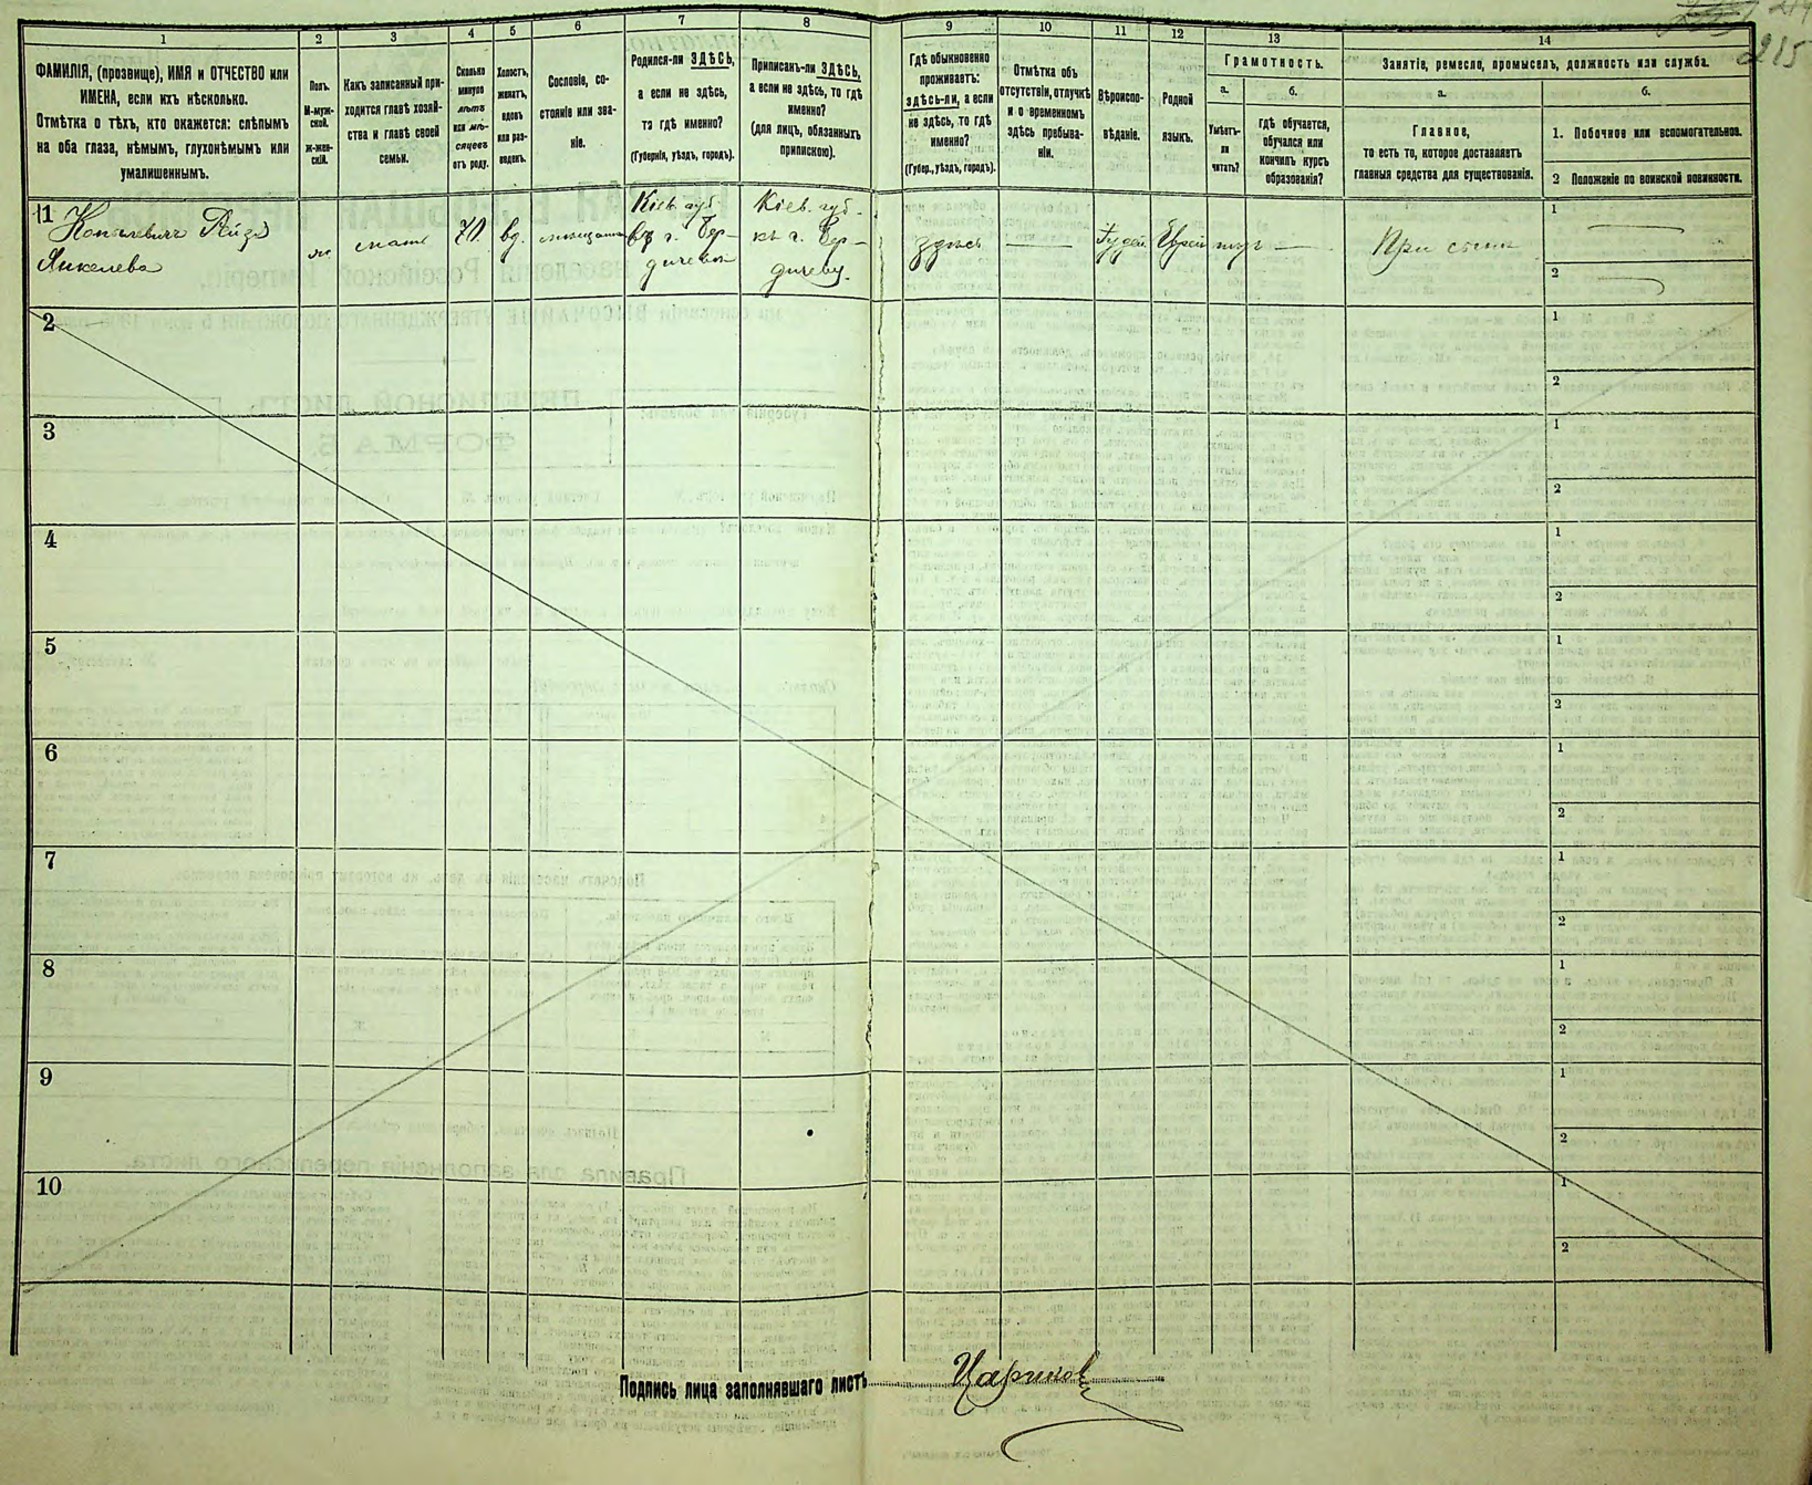 215
1
2
3
4
5
6
7
8
9
10
11
12
13
14
ФАМИЛІЯ, (прозвище), ИМЯ и ОТЧЕСТВО или
ИМЕНА, если ихъ нѣсколько.
Отмѣтка о тѣхъ, кто окажется: слѣпымъ
на оба глаза, нѣмымъ, глухонѣмымъ или
умалишеннымъ.
Полъ.
М-муж-
ской.
ж-жен-
скій.
Какъ записанный при-
ходится главѣ хозяй-
ства и главѣ своей
семьи.
Сколько
минуло
лѣтъ
или мѣ-
сяцевъ
отъ роду.
Холостъ,
женатъ,
вдовъ
или раз-
веденъ.
Сословіе, со-
стояніе или зва-
ніе.
Родился-ли ЗДѢСЬ,
а если не здѣсь,
то гдѣ именно?
(Губернія, уѣздъ, городъ).
Приписанъ-ли ЗДѢСЬ,
а если не здѣсь, то гдѣ
именно?
(для лицъ, обязанныхъ
припискою).
Гдѣ обыкновенно
проживаетъ:
здѣсь-ли, а если
не здѣсь, то гдѣ
именно?
(Губер., уѣздъ, городъ).
Отмѣтка объ
отсутствіи, отлучкѣ
и о временномъ
здѣсь пребыва-
ніи.
Вѣроиспо-
вѣданіе.
Родной
языкъ.
Грамотность.
а.
Умѣетъ-
ли
читать?
б.
гдѣ обучается,
обучался или
кончилъ курсъ
образованія?
Занятіе, ремесло, промыселъ, должность или служба.
а.
Главное,
то есть то, которое доставляетъ
главныя средства для существованія.
б.
1. Побочное или вспомогательное.
2 Положеніе по воинской повинности.
1
Рейзя
Янкелева
ж
мать
70.
вд.
Кіев. губ.
въ г. Бер-
дичевѣ
Кіев. губ.
къ г. Бер-
дичеву.
здѣсь
Іудей
Еврей
При сынѣ
1
2
2
1
2
3
1
2
4
1
2
5
1
2
6
1
2
7
1
2
8
1
2
9
1
2
10
1
2
Подпись лица заполнявшаго листъ